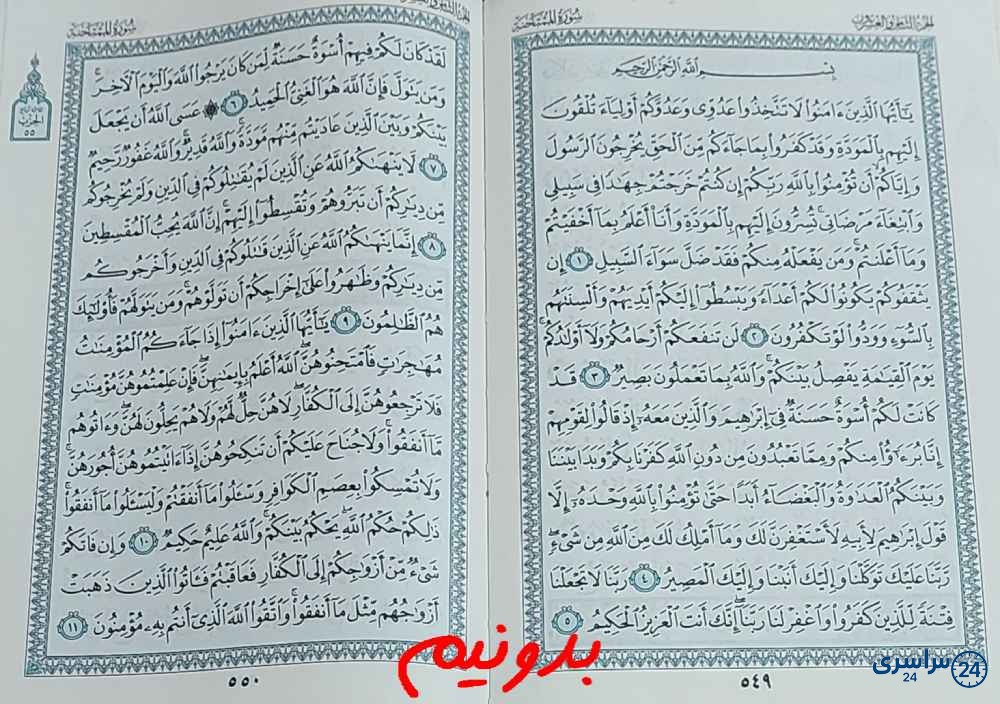 الجزء الثامن والعشرون
سورة الممتحنة
بِسْمِ اللَّهِ الرَّحْمَٰنِ الرَّحِيمِ
يَٰٓأَيُّهَا ٱلَّذِينَ ءَامَنُوا۟ لَا تَتَّخِذُوا۟ عَدُوِّى وَعَدُوَّكُمْ أَوْلِيَآءَ تُلْقُونَ
إِلَيْهِم بِٱلْمَوَدَّةِ وَقَدْ كَفَرُوا۟ بِمَا جَآءَكُم مِّنَ ٱلْحَقِّ يُخْرِجُونَ ٱلرَّسُولَ
وَإِيَّاكُمْ أَن تُؤْمِنُوا۟ بِٱللَّهِ رَبِّكُمْ إِن كُنتُمْ خَرَجْتُمْ جِهَٰدًا فِى سَبِيلِى
وَٱبْتِغَآءَ مَرْضَاتِى تُسِرُّونَ إِلَيْهِم بِٱلْمَوَدَّةِ وَأَنَا۠ أَعْلَمُ بِمَآ أَخْفَيْتُمْ
وَمَآ أَعْلَنتُمْ وَمَن يَفْعَلْهُ مِنكُمْ فَقَدْ ضَلَّ سَوَآءَ ٱلسَّبِيلِ ١ إِن
يَثْقَفُوكُمْ يَكُونُوا۟ لَكُمْ أَعْدَآءً وَيَبْسُطُوٓا۟ إِلَيْكُمْ أَيْدِيَهُمْ وَأَلْسِنَتَهُم
بِٱلسُّوٓءِ وَوَدُّوا۟ لَوْ تَكْفُرُونَ ٢ لَن تَنفَعَكُمْ أَرْحَامُكُمْ وَلَآ أَوْلَٰدُكُمْ
يَوْمَ ٱلْقِيَٰمَةِ يَفْصِلُ بَيْنَكُمْ وَٱللَّهُ بِمَا تَعْمَلُونَ بَصِيرٌ ٣ قَدْ
كَانَتْ لَكُمْ أُسْوَةٌ حَسَنَةٌ فِىٓ إِبْرَٰهِيمَ وَٱلَّذِينَ مَعَهُۥٓ إِذْ قَالُوا۟ لِقَوْمِهِمْ
إِنَّا بُرَءَٰٓؤُا۟ مِنكُمْ وَمِمَّا تَعْبُدُونَ مِن دُونِ ٱللَّهِ كَفَرْنَا بِكُمْ وَبَدَا بَيْنَنَا
وَبَيْنَكُمُ ٱلْعَدَٰوَةُ وَٱلْبَغْضَآءُ أَبَدًا حَتَّىٰ تُؤْمِنُوا۟ بِٱللَّهِ وَحْدَهُۥٓ إِلَّا
قَوْلَ إِبْرَٰهِيمَ لِأَبِيهِ لَأَسْتَغْفِرَنَّ لَكَ وَمَآ أَمْلِكُ لَكَ مِنَ ٱللَّهِ مِن شَىْءٍ
رَّبَّنَا عَلَيْكَ تَوَكَّلْنَا وَإِلَيْكَ أَنَبْنَا وَإِلَيْكَ ٱلْمَصِيرُ ٤ رَبَّنَا لَا تَجْعَلْنَا
فِتْنَةً لِّلَّذِينَ كَفَرُوا۟ وَٱغْفِرْ لَنَا رَبَّنَآ إِنَّكَ أَنتَ ٱلْعَزِيزُ ٱلْحَكِيمُ ٥
٥٤٩
سورة الممتحنة
لَقَدْ كَانَ لَكُمْ فِيهِمْ أُسْوَةٌ حَسَنَةٌ لِّمَن كَانَ يَرْجُوا۟ ٱللَّهَ وَٱلْيَوْمَ ٱلْءَاخِرَ
وَمَن يَتَوَلَّ فَإِنَّ ٱللَّهَ هُوَ ٱلْغَنِىُّ ٱلْحَمِيدُ ٦ ۞ عَسَى ٱللَّهُ أَن يَجْعَلَ
بَيْنَكُمْ وَبَيْنَ ٱلَّذِينَ عَادَيْتُم مِّنْهُم مَّوَدَّةً وَٱللَّهُ قَدِيرٌ وَٱللَّهُ غَفُورٌ رَّحِيمٌ
٧ لَّا يَنْهَىٰكُمُ ٱللَّهُ عَنِ ٱلَّذِينَ لَمْ يُقَٰتِلُوكُمْ فِى ٱلدِّينِ وَلَمْ يُخْرِجُوكُم
مِّن دِيَٰرِكُمْ أَن تَبَرُّوهُمْ وَتُقْسِطُوٓا۟ إِلَيْهِمْ إِنَّ ٱللَّهَ يُحِبُّ ٱلْمُقْسِطِينَ
٨ إِنَّمَا يَنْهَىٰكُمُ ٱللَّهُ عَنِ ٱلَّذِينَ قَٰتَلُوكُمْ فِى ٱلدِّينِ وَأَخْرَجُوكُم
مِّن دِيَٰرِكُمْ وَظَٰهَرُوا۟ عَلَىٰٓ إِخْرَاجِكُمْ أَن تَوَلَّوْهُمْ وَمَن يَتَوَلَّهُمْ فَأُو۟لَٰٓئِكَ
هُمُ ٱلظَّٰلِمُونَ ٩ يَٰٓأَيُّهَا ٱلَّذِينَ ءَامَنُوٓا۟ إِذَا جَآءَكُمُ ٱلْمُؤْمِنَٰتُ
مُهَٰجِرَٰتٍ فَٱمْتَحِنُوهُنَّ ٱللَّهُ أَعْلَمُ بِإِيمَٰنِهِنَّ فَإِنْ عَلِمْتُمُوهُنَّ مُؤْمِنَٰتٍ
فَلَا تَرْجِعُوهُنَّ إِلَى ٱلْكُفَّارِ لَا هُنَّ حِلٌّ لَّهُمْ وَلَا هُمْ يَحِلُّونَ لَهُنَّ وَءَاتُوهُم
مَّآ أَنفَقُوا۟ وَلَا جُنَاحَ عَلَيْكُمْ أَن تَنكِحُوهُنَّ إِذَآ ءَاتَيْتُمُوهُنَّ أُجُورَهُنَّ
وَلَا تُمْسِكُوا۟ بِعِصَمِ ٱلْكَوَافِرِ وَسْـَٔلُوا۟ مَآ أَنفَقْتُمْ وَلْيَسْـَٔلُوا۟ مَآ أَنفَقُوا۟
ذَٰلِكُمْ حُكْمُ ٱللَّهِ يَحْكُمُ بَيْنَكُمْ وَٱللَّهُ عَلِيمٌ حَكِيمٌ ١٠ وَإِن فَاتَكُمْ
شَىْءٌ مِّنْ أَزْوَٰجِكُمْ إِلَى ٱلْكُفَّارِ فَعَاقَبْتُمْ فَـَٔاتُوا۟ ٱلَّذِينَ ذَهَبَتْ
أَزْوَٰجُهُم مِّثْلَ مَآ أَنفَقُوا۟ وَٱتَّقُوا۟ ٱللَّهَ ٱلَّذِىٓ أَنتُم بِهِۦ مُؤْمِنُونَ ١١
٥٥٠
الحزب
٥٥
بدونیم
سراسری 24
24